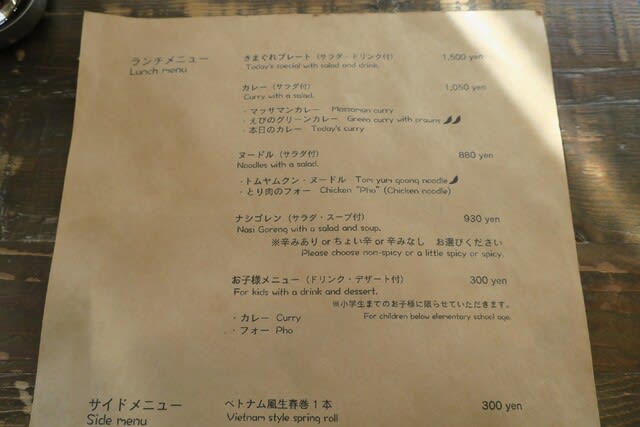 ランチメニュー きまぐれプレート（サラダ・ドリンク付） 1,500 yen
Lunch menu Today's special with salad and drink.
カレー（サラダ付） 1,050 yen
Curry with a salad.
・マッサマンカレー Massaman curry
・えびのグリーンカレー Green curry with prawns
・本日のカレー Today's curry
ヌードル（サラダ付） 880 yen
Noodles with a salad.
・トムヤムクン・ヌードル Tom yum goong noodle
・とり肉のフォー Chicken "Pho" (Chicken noodle)
ナシゴレン（サラダ・スープ付） 930 yen
Nasi Goreng with a salad and soup.
※辛みあり or ちょい辛 or 辛みなし お選びください
Please choose non-spicy or a little spicy or spicy.
お子様メニュー（ドリンク・デザート付） 300 yen
For kids with a drink and dessert.
※小学生までのお子様に限らせていただきます。
・カレー Curry For children below elementary school age.
・フォー Pho
サイドメニュー ベトナム風生春巻 1 本 300 yen
Side menu Vietnam style spring roll